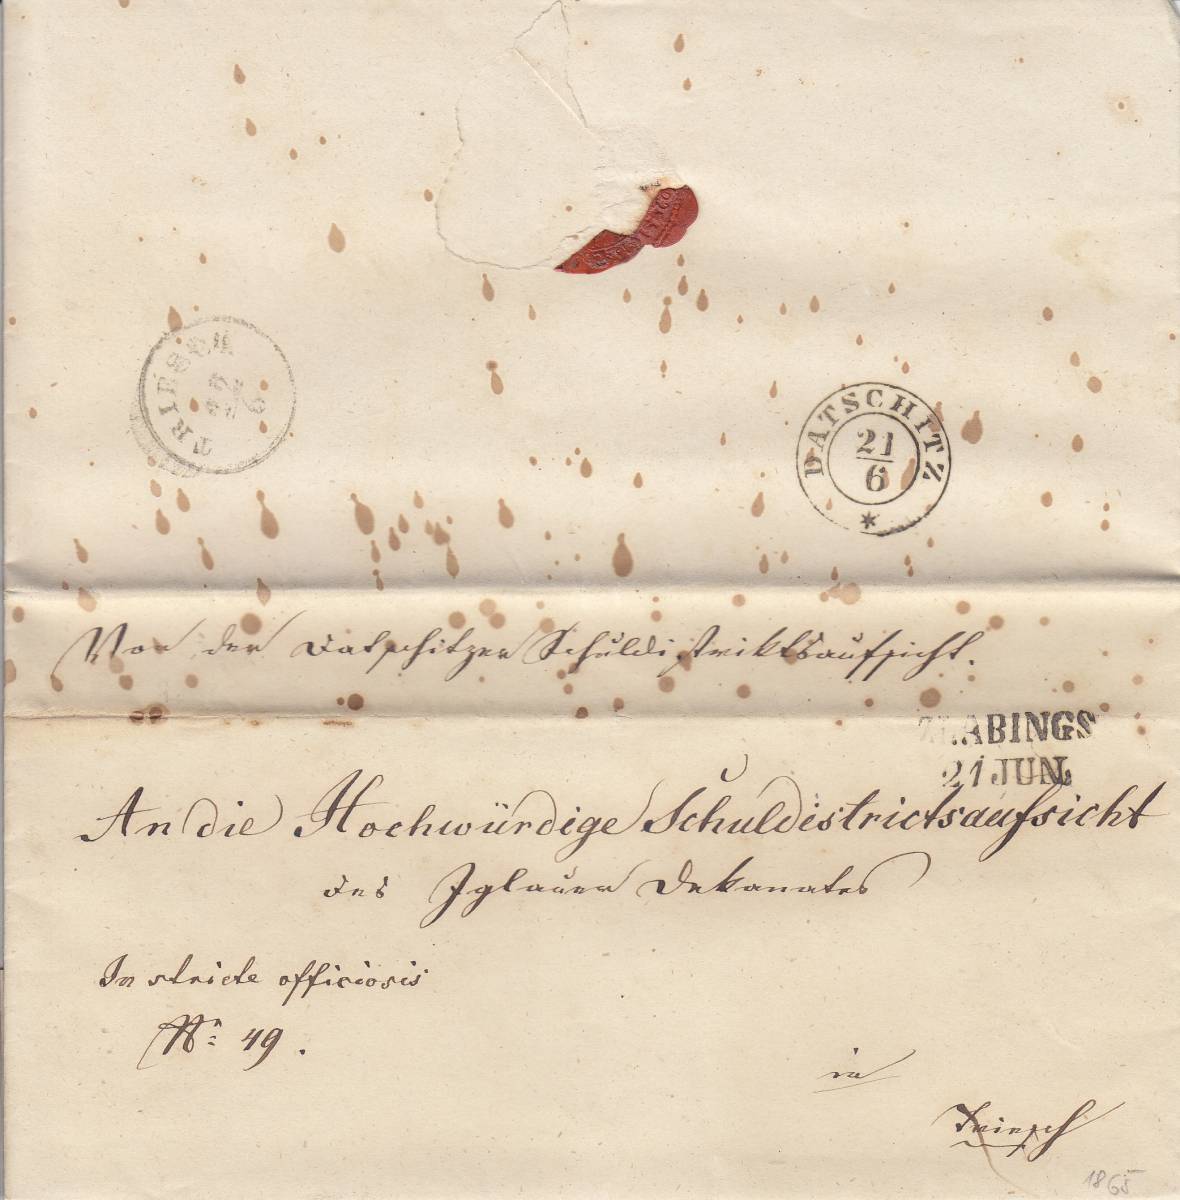 TRIESCH
22
6
DATSCHITZ
21
6
Von der Datschitzer Schuldistriktsaufsicht.
ZLABINGS
21 JUN.
An die Hochwürdige Schuldistrictsaufsicht
des Iglauer Dekanates
In stricte officiosis
Nr 49.
in
Triesch
1865